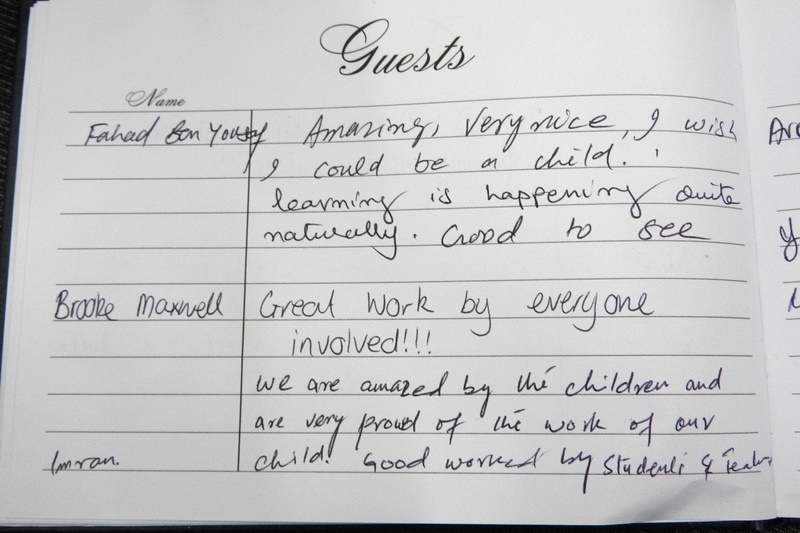 Guests
Name
Fahad Bon Yousuf Amazing, Very nice, I wish
I could be a child.
learning is happening quite
naturally. Good to see
Brooke Maxwell Great Work by everyone
involved!!!
we are amazed by the children and
are very proud of the work of our
Imran. child. Good worked by Students &